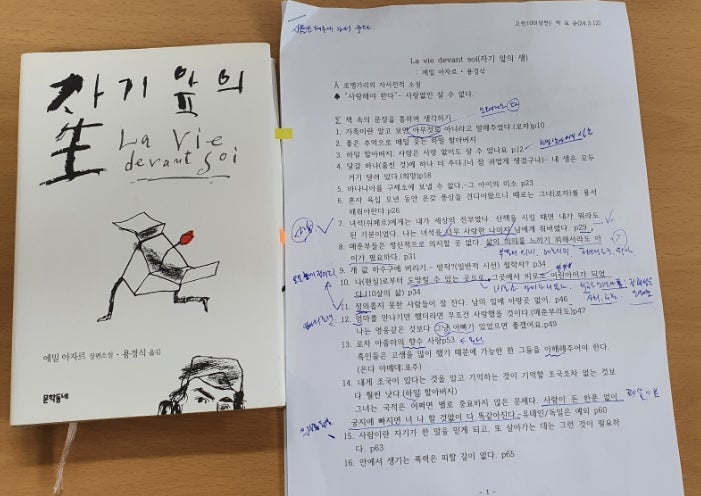 자기 앞의
生
La Vie
devant soi
에밀 아자르 장편소설 · 용경식 옮김
문학동네
고전100(상반) 박 요 숙(24.3.12)
La vie devant soi(자기 앞의 생)
: 에밀 아자르 · 용경식
Å 로맹가리의 자서전적 소설
♠ "사랑해야 한다"- 사랑없인 살 수 없다.
∑ 책 속의 문장을 통하여 생각하기
1. 가족이란 알고 보면 아무것도 아니라고 말해주었다.(로자)p10
2. 좋은 추억으로 매일 웃는 하밀 할아버지
3. 하밀 할아버지, 사람은 사랑 없이도 살 수 있나요 p12
4. 달걀 하나(훔친 것)에 하나 더 주다.(너 참 귀엽게 생겼구나)- 내 생은 모두
거기 달려 있다.(희망)p18
5. 바나니아를 구제소에 보낼 수 없다.-그 아이의 미소 p23
6. 혼자 육십 오년 동안 온갖 풍상을 견디어왔으니 때로는 그녀(로자)를 용서
해줘야한다 p26
7. 녀석(쉬페르)에게는 내가 세상의 전부였다. 산책을 시킬 때면 내가 뭐라도
된 기분이었다. 나는 녀석을 너무 사랑한 나머지 남에게 줘버렸다. p29
8. 매춘부들은 정신적으로 의지할 곳 없다. 삶의 의의를 느끼기 위해서라도 아
이가 필요하다. p31
9. 개 값 하수구에 버리기.- 발작?(일반적 시선) 철학자? p34
10. 나(현실)로부터 도망칠 수 있는 곳으로, 그곳에서 비로소 어린아이가 되었
다.(10살의 삶) p34
11. 정의롭지 못한 사람들이 잘 잔다. 남의 일에 아랑곳 없이. p46
12. 엄마를 만나기만 했더라면 무조건 사랑했을 것이다.(매춘부라도) p47
나는 영웅같은 것보다 그냥 아빠가 있었으면 좋겠어요 p49
13. 로자 아줌마의 향수 사랑p53
흑인들은 고생을 많이 했기 때문에 가능한 한 그들을 이해해주어야 한다.
(은다 아메데:포주)
14. 내게 조국이 있다는 것을 알고 기억하는 것이 기억할 조국조차 없는 것보
다 훨씬 낫다.(하밀 할아버지)
그녀는 국적은 어쩌면 별로 중요하지 않은 문제다. 사람이 돈 한푼 없이
궁지에 빠지면 너 나 할 것없이 다 똑같아진다.- 유태인/독일은 예외 p60
15. 사람이란 자기가 한 말을 믿게 되고, 또 살아가는 데는 그런 것이 필요하
다. p63
16. 안에서 생기는 폭력은 피할 길이 없다. p65
- 1 -